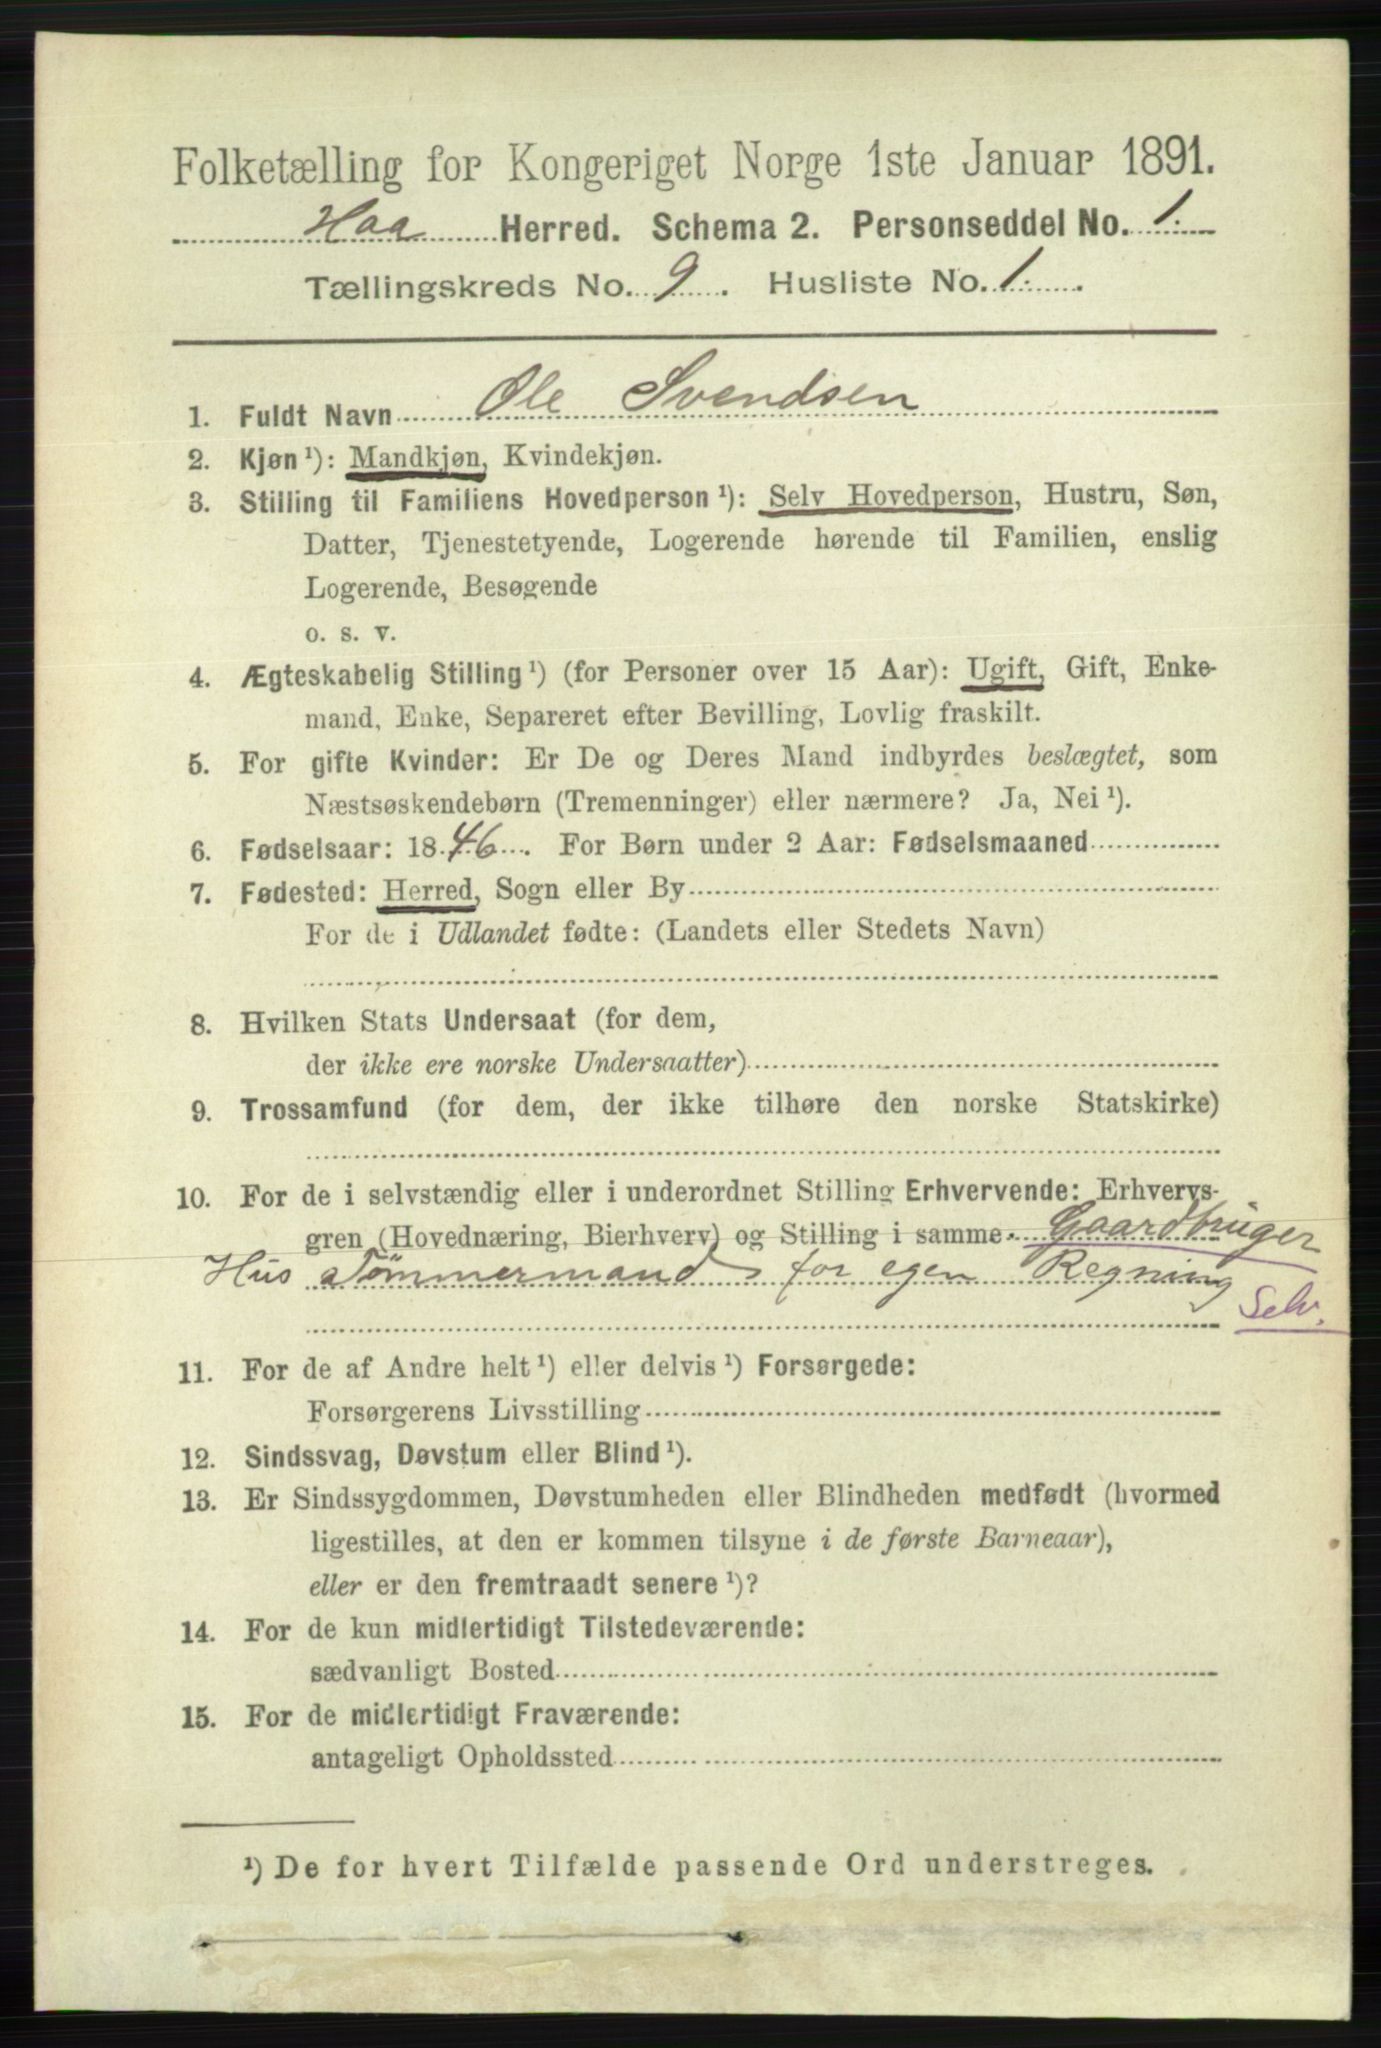 Folketælling for Kongeriget Norge 1ste Januar 1891.
Haa Herred. Schema 2. Personseddel No. 1.
Tællingskreds No. 9. Husliste No. 1.
1. Fuldt Navn Ole Svendsen
2. Kjøn ¹): Mandkjøn, Kvindekjøn.
3. Stilling til Familiens Hovedperson ¹): Selv Hovedperson, Hustru, Søn,
Datter, Tjenestetyende, Logerende hørende til Familien, enslig
Logerende, Besøgende
o. s. v.
4. Ægteskabelig Stilling ¹) (for Personer over 15 Aar): Ugift, Gift, Enke-
mand, Enke, Separeret efter Bevilling, Lovlig fraskilt.
5. For gifte Kvinder: Er De og Deres Mand indbyrdes beslægtet, som
Næstsøskendebørn (Tremenninger) eller nærmere? Ja, Nei ¹).
6. Fødselsaar: 1846. For Børn under 2 Aar: Fødselsmaaned
7. Fødested: Herred, Sogn eller By
For de i Udlandet fødte: (Landets eller Stedets Navn)
8. Hvilken Stats Undersaat (for dem,
der ikke ere norske Undersaatter)
9. Trossamfund (for dem, der ikke tilhøre den norske Statskirke)
10. For de i selvstændig eller i underordnet Stilling Erhvervende: Erhvervs-
gren (Hovednæring, Bierhverv) og Stilling i samme. Gaardbruger
Hus Tømmermand for egen Regning
Selv.
11. For de af Andre helt ¹) eller delvis ¹) Forsørgede:
Forsørgerens Livsstilling
12. Sindssvag, Døvstum eller Blind ¹).
13. Er Sindssygdommen, Døvstumheden eller Blindheden medfødt (hvormed
ligestilles, at den er kommen tilsyne i de første Barneaar),
eller er den fremtraadt senere ¹)?
14. For de kun midlertidigt Tilstedeværende:
sædvanligt Bosted
15. For de midlertidigt Fraværende:
antageligt Opholdssted
¹) De for hvert Tilfælde passende Ord understreges.